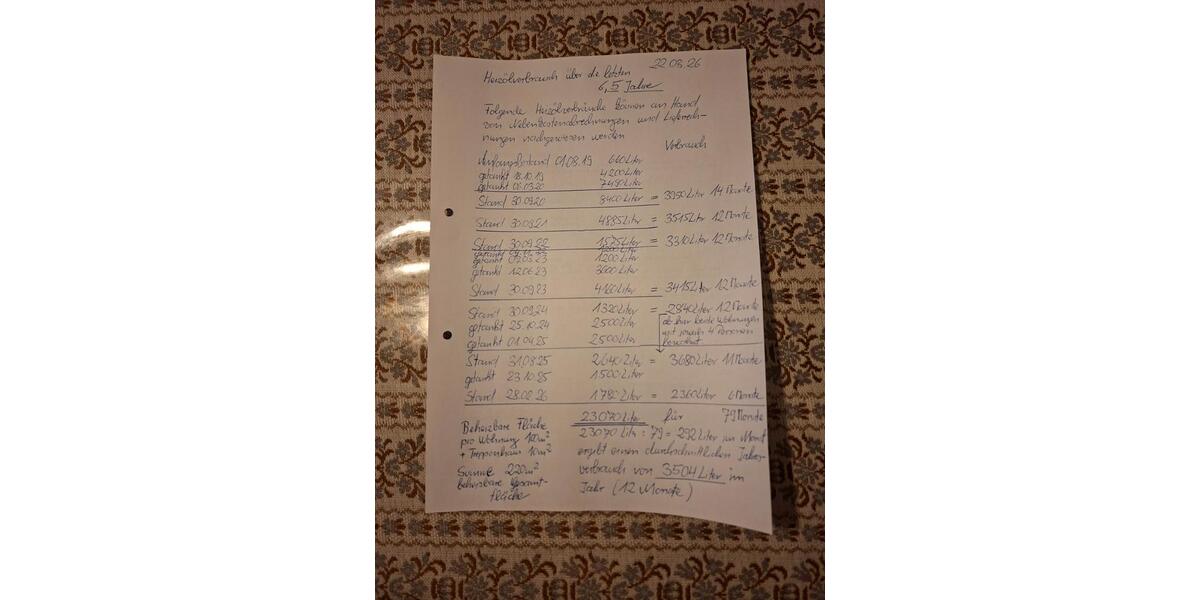 22.03.26
Heizölverbrauch über die letzten
6,5 Jahre
Folgende Heizölverbräuche können an Hand
von Nebenkostenabrechnungen und Lieferrech-
nungen nachgewiesen werden
Verbrauch
01.08.19 660 Liter
getankt 18.10.19 4200 Liter
getankt 06.03.20 7480 Liter
Stand 30.09.20 8400 Liter = 3950 Liter 14 Monate
Stand 30.09.21 4885 Liter = 3515 Liter 12 Monate
Stand 30.09.22 1575 Liter = 3310 Liter 12 Monate
getankt
getankt 07.03.23 1200 Liter
getankt 12.06.23 3600 Liter
Stand 30.09.23 4160 Liter = 3415 Liter 12 Monate
Stand 30.09.24 1320 Liter = 2840 Liter 12 Monate
getankt 25.10.24 2500 Liter ab hier beide Wohnungen
getankt 01.04.25 2500 Liter mit jeweils 4 Personen
bewohnt
Stand 31.08.25 2640 Liter = 3680 Liter 11 Monate
getankt 23.10.25 1500 Liter
Stand 28.02.26 1780 Liter = 2360 Liter 6 Monate
23070 Liter für 79 Monate
23070 Liter : 79 = 292 Liter im Monat
ergibt einen durchschnittlichen Jahres-
verbrauch von 3504 Liter im
Jahr (12 Monate)
Beheizbare Fläche
pro Wohnung 100m²
+ Treppenhaus 10m²
Summe 220m²
beheizbare Gesamt-
fläche